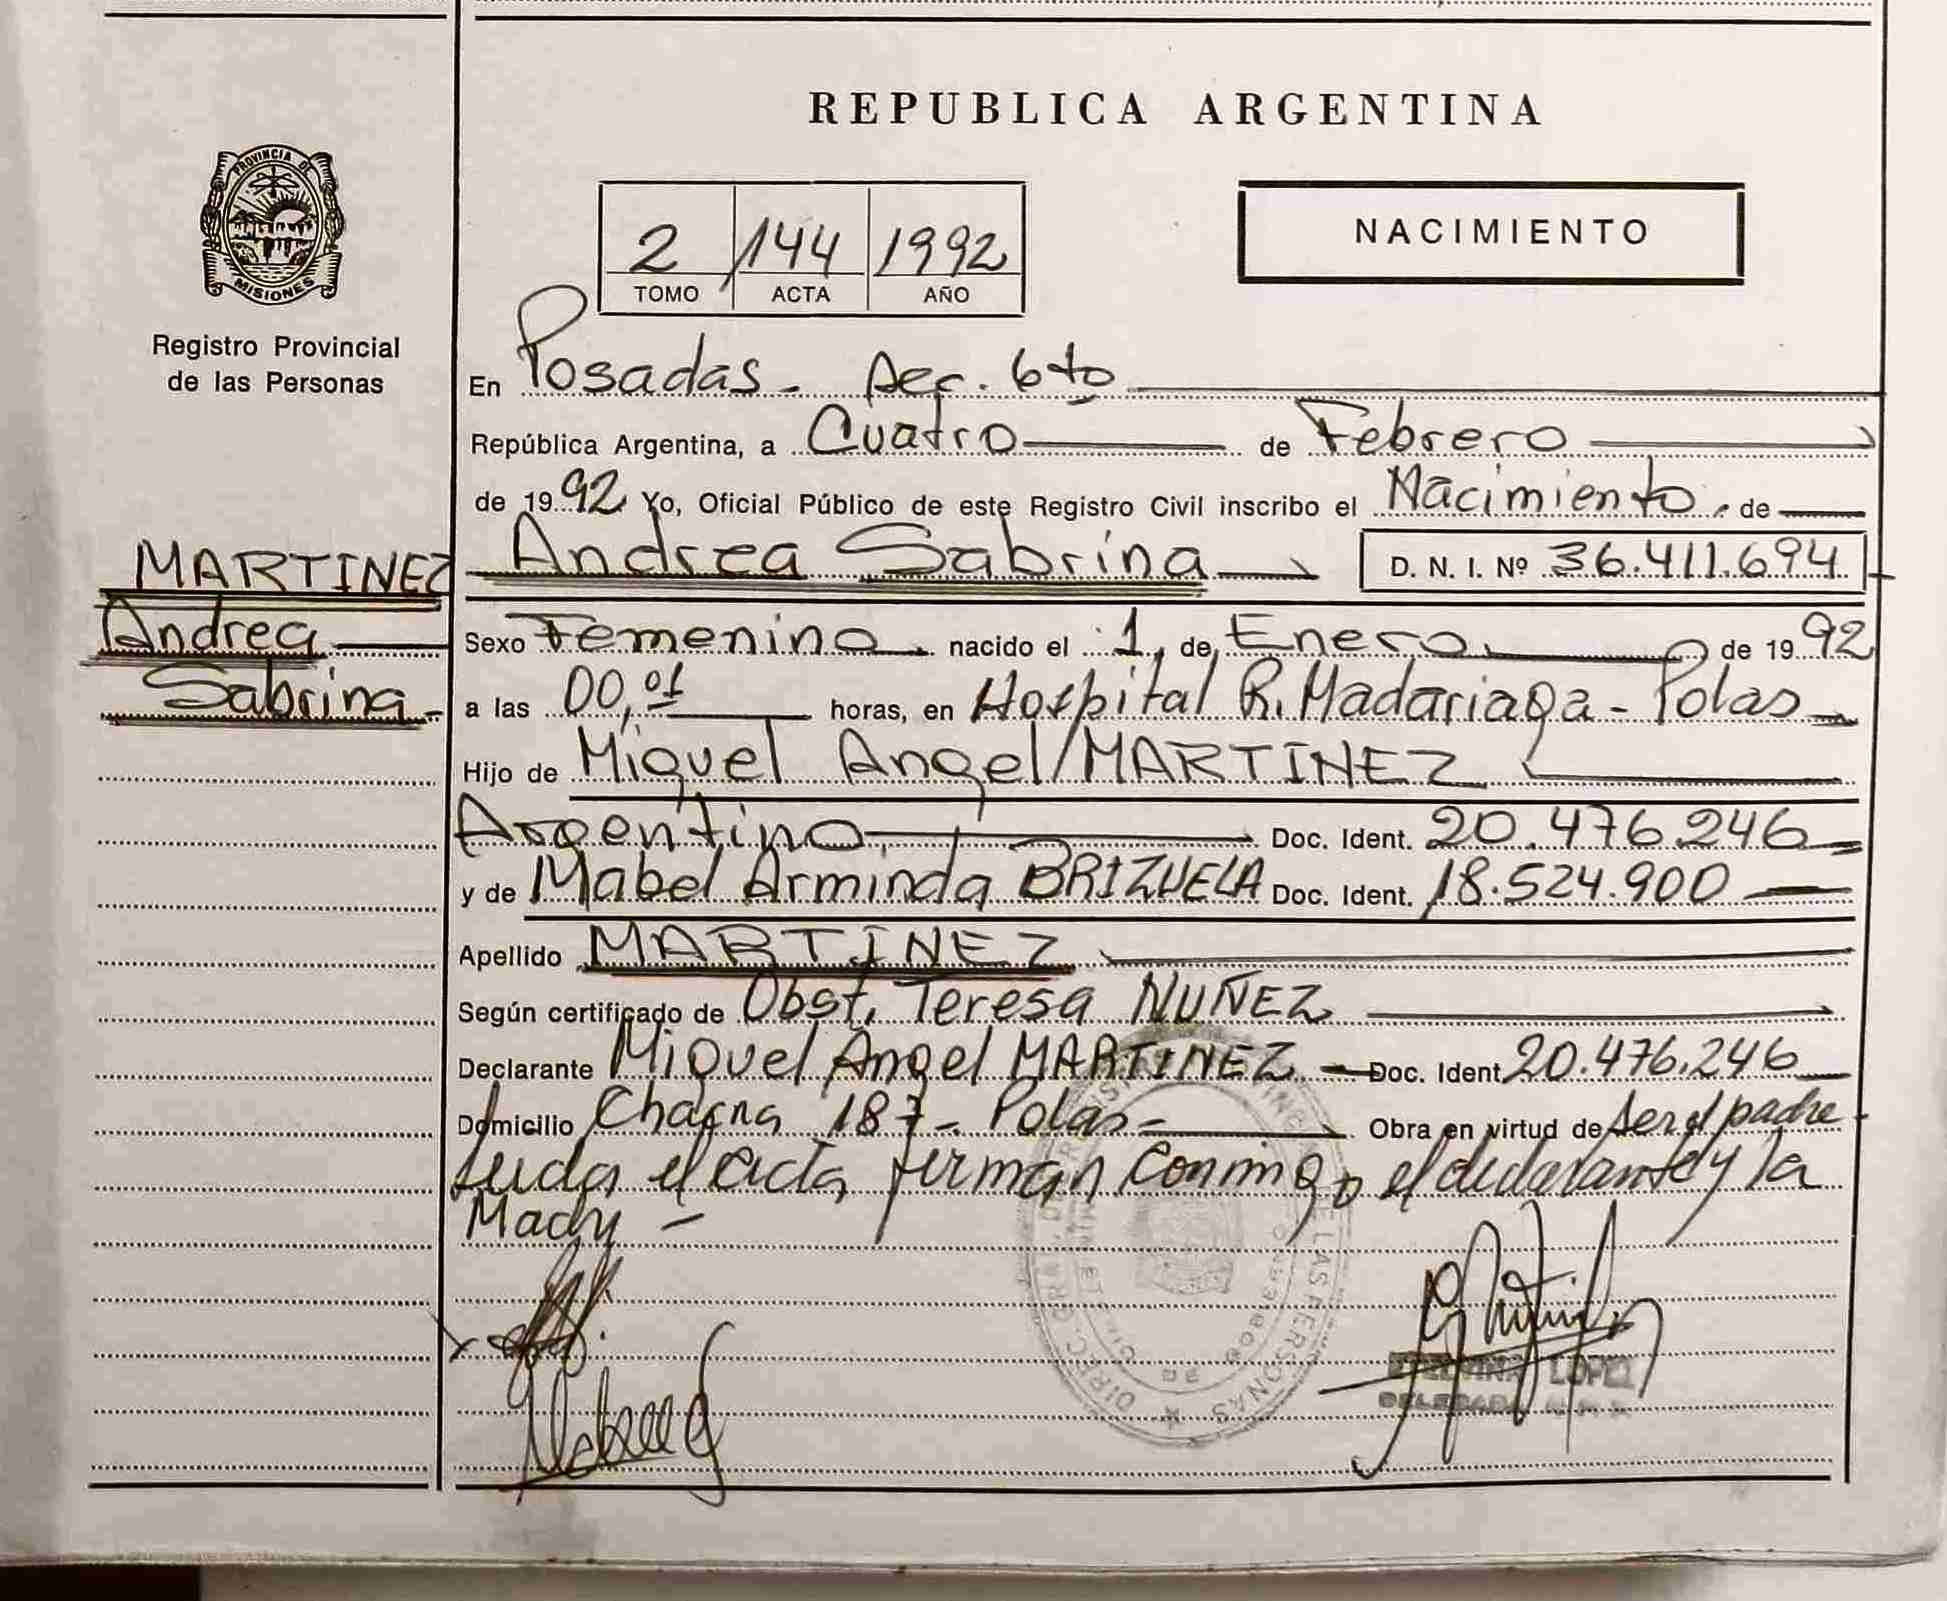 REPUBLICA ARGENTINA
PROVINCIA DE
MISIONES
Registro Provincial
de las Personas
2 144 1992
TOMO ACTA AÑO
NACIMIENTO
En Posadas - Sec. 6to
República Argentina, a Cuatro de Febrero
de 1992 Yo, Oficial Público de este Registro Civil inscribo el Nacimiento. de
MARTINEZ
Andrea
Sabrina
Andrea Sabrina D. N. I. Nº 36.411.694
Sexo Femenino nacido el 1 de Enero de 1992
a las 00,01 horas, en Hospital R. Madariaga - Pdas
Hijo de Miguel Angel / MARTINEZ
Argentino Doc. Ident. 20.476.246
y de Mabel Arminda BRIZUELA Doc. Ident. 18.524.900
Apellido MARTINEZ
Según certificado de Obst. Teresa NUÑEZ
Declarante Miguel Angel MARTINEZ Doc. Ident 20.476.246
Domicilio 187 - Pdas - Obra en virtud de ser el padre
Leida el acta, firman conmigo el declarante y la
Madre -
LOPEZ
DELEGADA